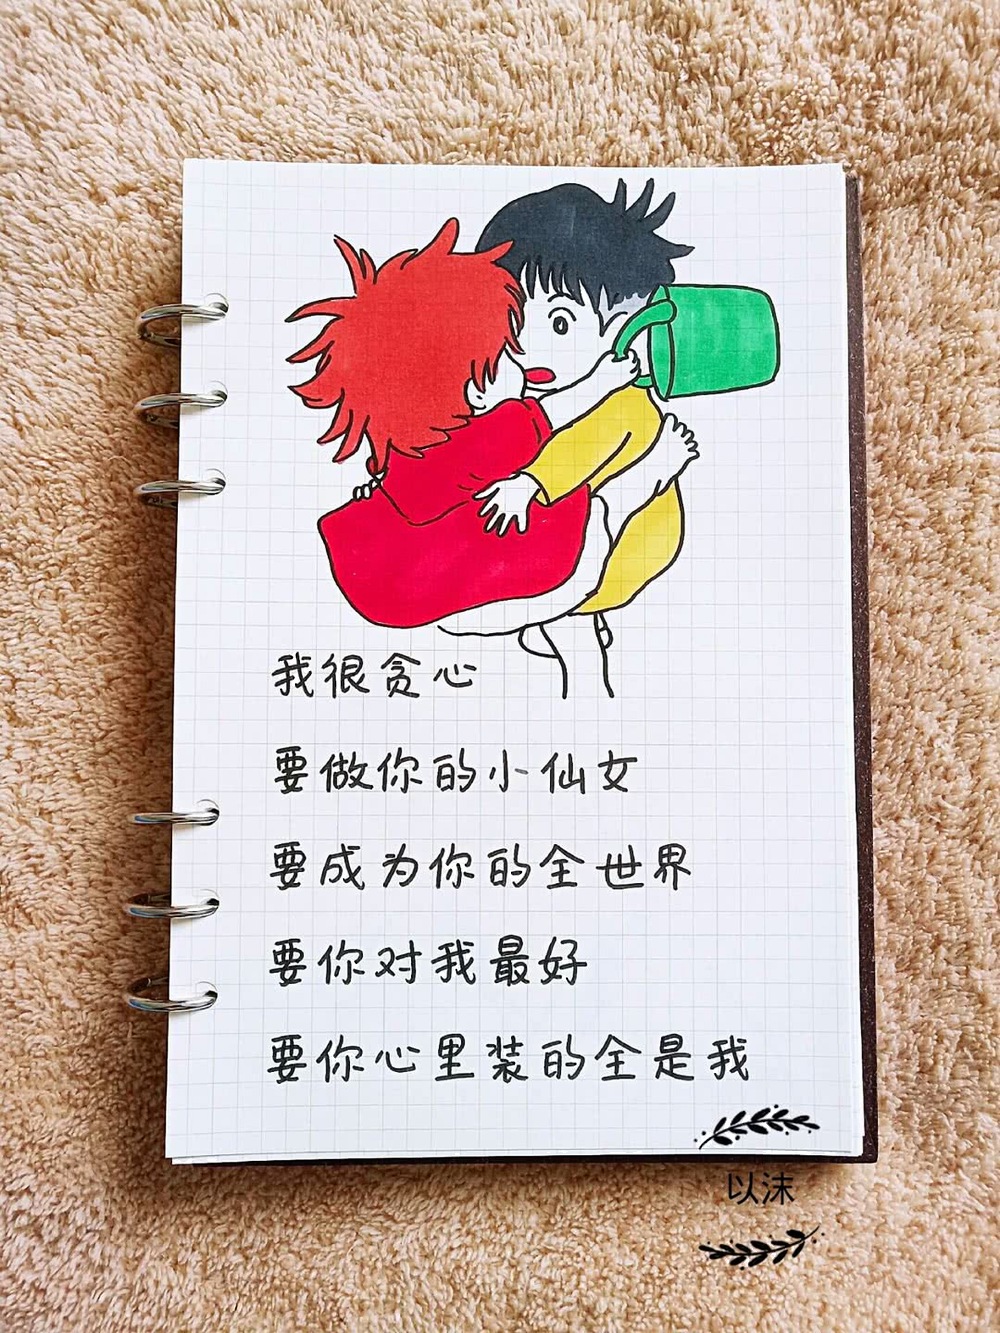 我很贪心
要做你的小仙女
要成为你的全世界
要你对我最好
要你心里装的全是我
以沫